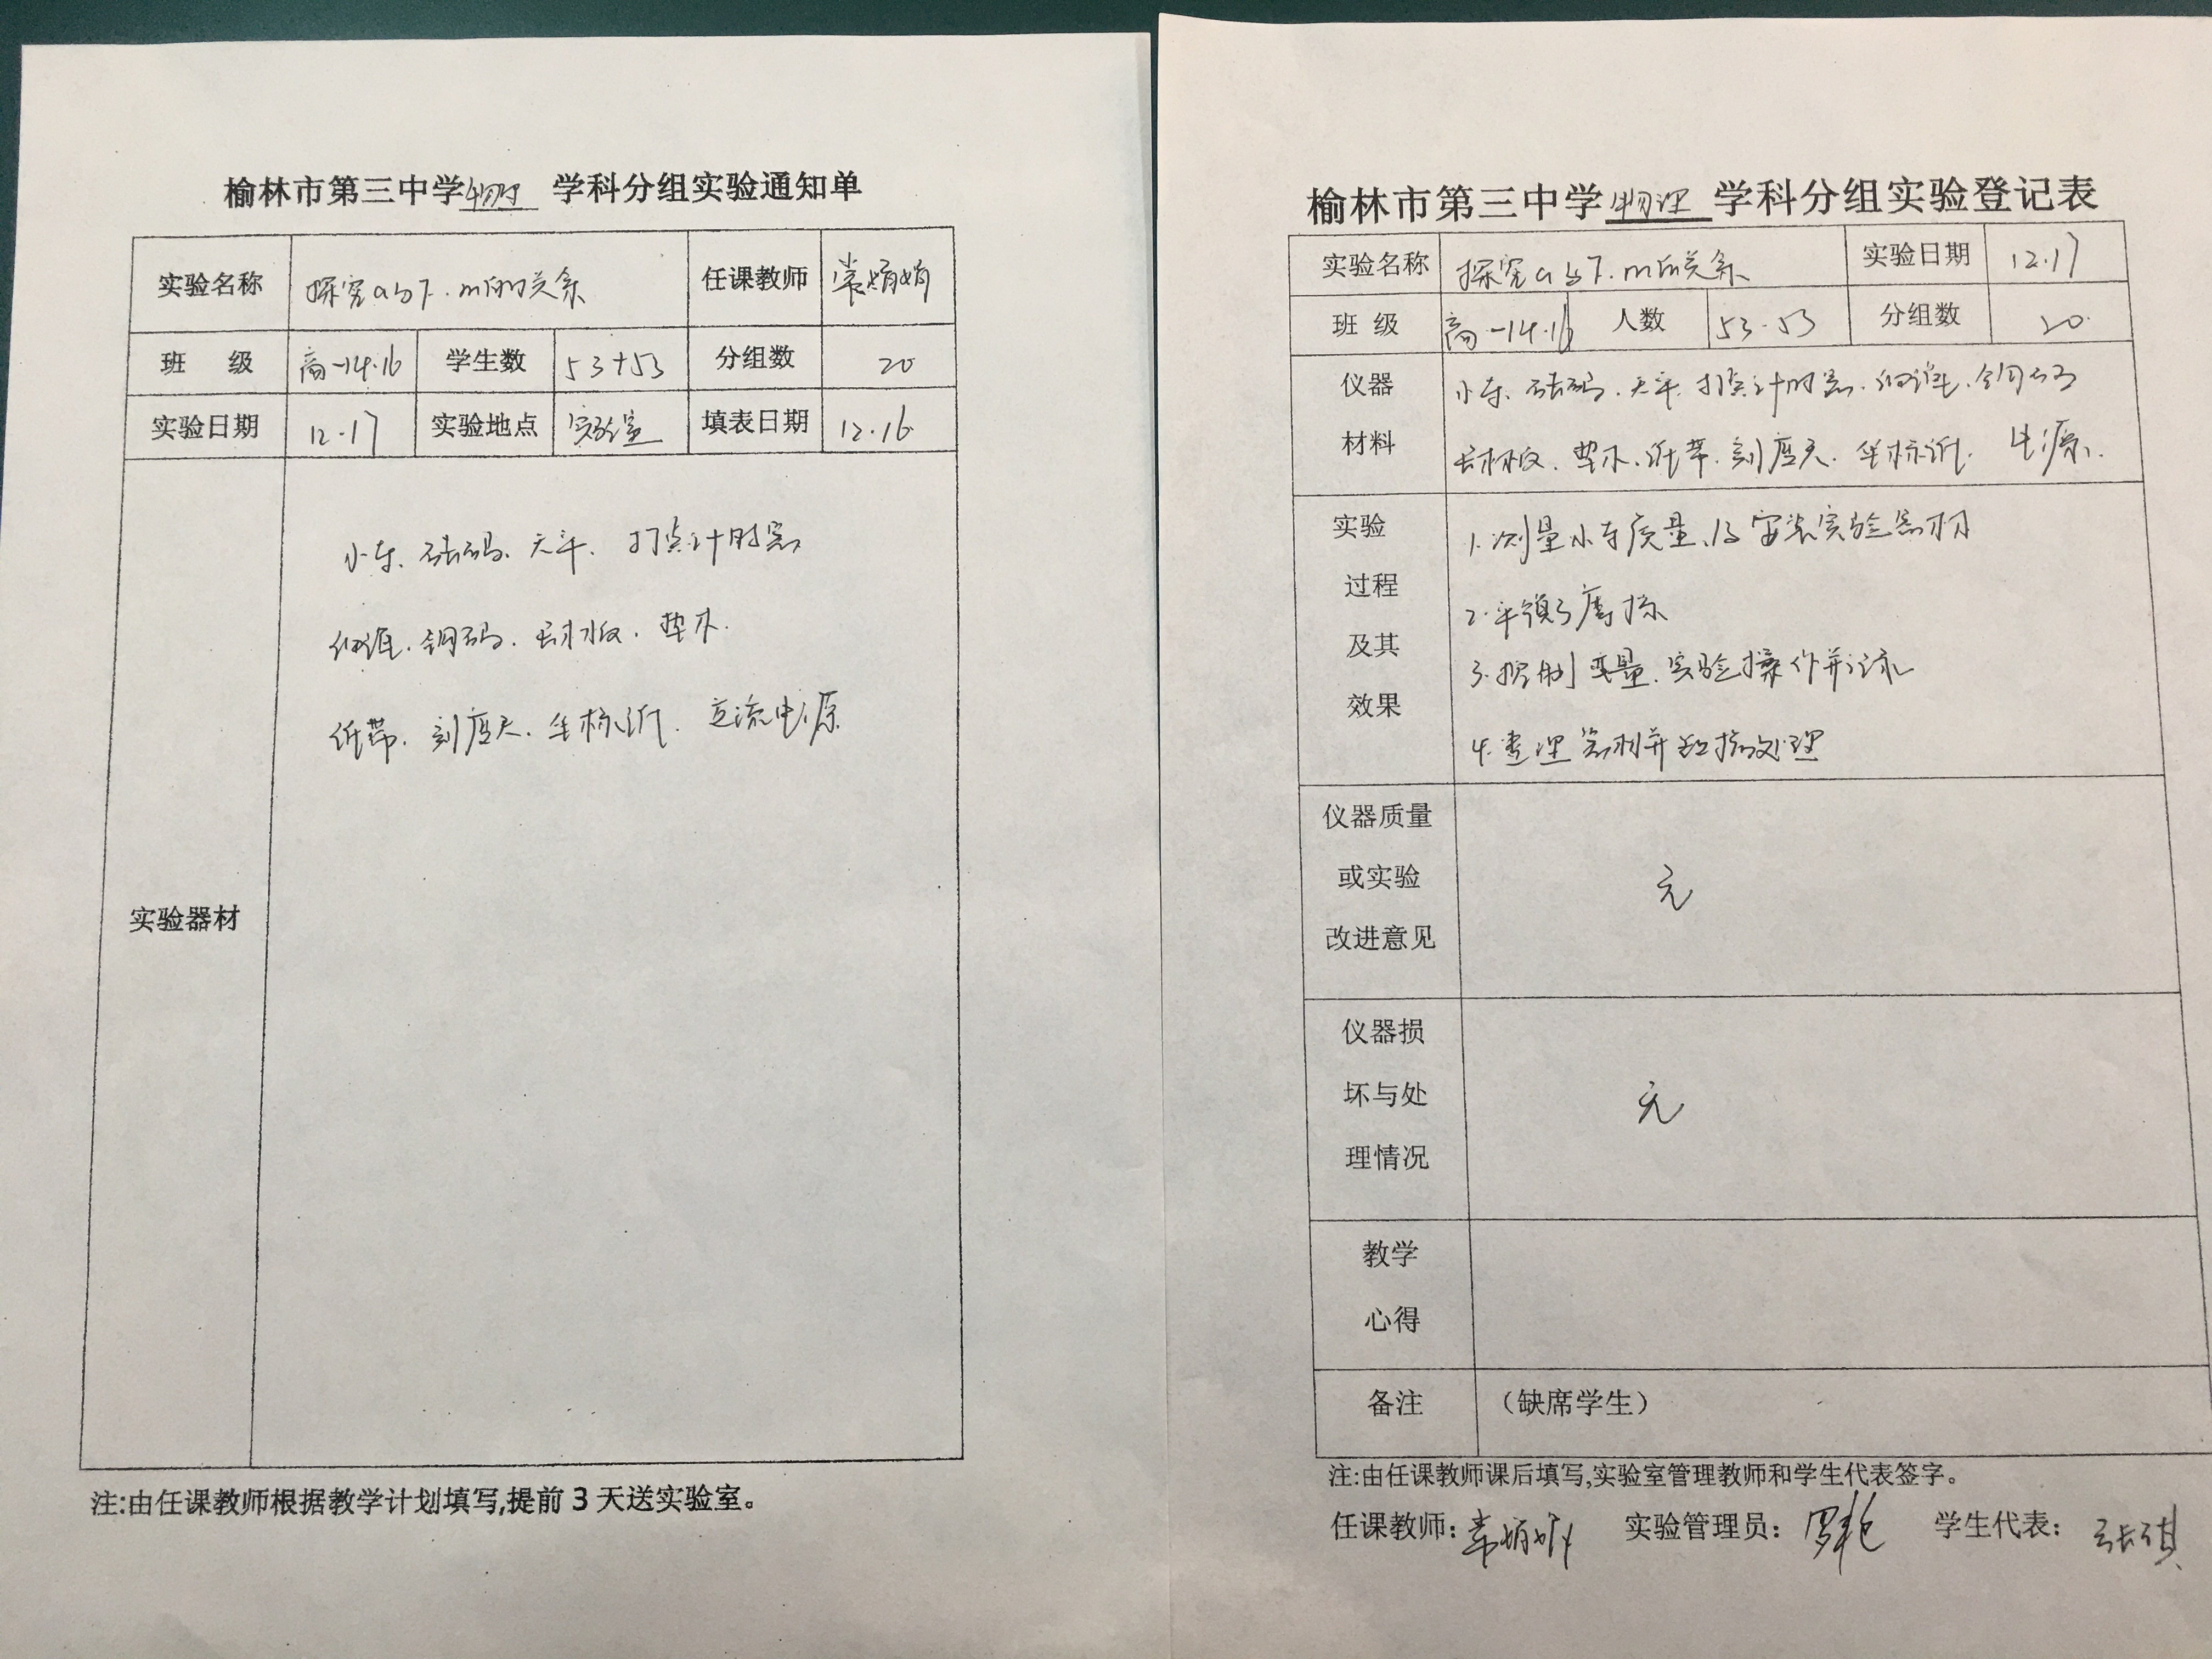 榆林市第三中学物理 学科分组实验通知单
实验名称 探究a与F.m的关系 任课教师 常娟娟
班 级 高一14.16 学生数 53+53 分组数 20
实验日期 12.17 实验地点 实验室 填表日期 12.16
实验器材
小车、砝码、天平、打点计时器
细绳、钩码、长木板、垫木.
纸带、刻度尺、坐标纸、交流电源
注:由任课教师根据教学计划填写,提前3天送实验室。
榆林市第三中学物理学科分组实验登记表
实验名称 探究a与F.m的关系 实验日期 12.17
班 级 高一14.16 人数 53.53 分组数 20.
仪器材料
小车、砝码、天平、打点计时器、细绳、钩码
长木板、垫木、纸带、刻度尺、坐标纸、电源.
实验过程及其效果
1.测量小车质量、安装实验器材
2.平衡摩擦
3.控制变量、实验操作并记录
4.整理器材并数据处理
仪器质量或实验改进意见
无
仪器损坏与处理情况
无
教学心得
备注 （缺席学生）
注:由任课教师课后填写,实验室管理教师和学生代表签字。
任课教师:常娟娟 实验管理员: 学生代表: 张琪